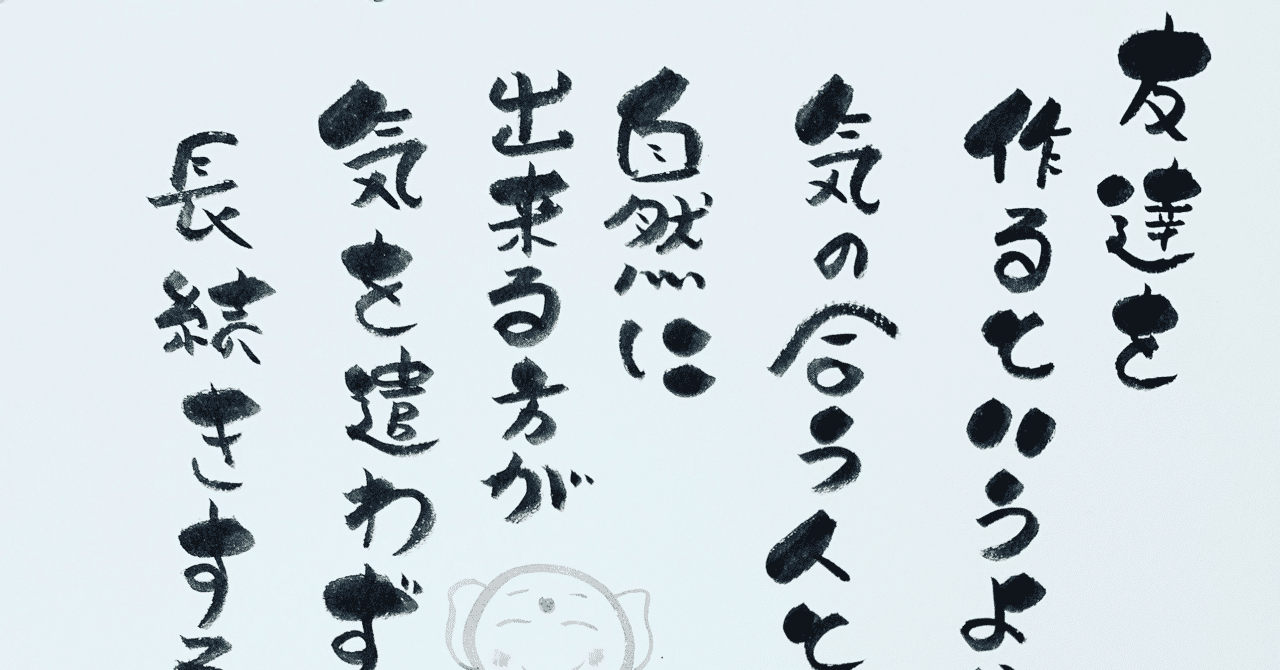 友達を
作るというよ
気の合う人と
自然に
出来る方が
気を遣わず
長続きする